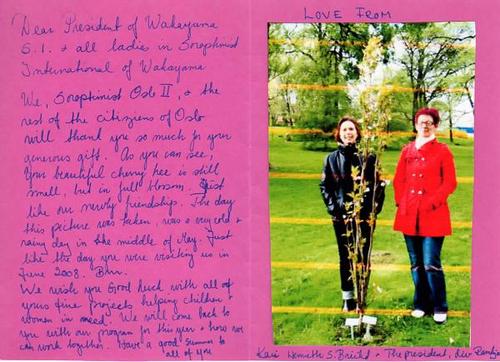 Dear President of Wakayama
S.I. & all ladies in Soroptimist
International of Wakayama
We, Soroptimist Oslo II, & the
rest of the citizens of Oslo
will thank you so much for your
generous gift. As you can see,
Your beautiful cherry tree is still
small, but in full blossom. Just
like our newly friendship. The day
this picture was taken, was a very cold &
rainy day in the middle of May. Just
like the day you were visiting us in
June 2008. Brrr.
We wish you Good luck with all of
yours fine projects helping children &
women in need. We will come back to
you with our program for this year & how we
can work together. Have a good summer to
all of you
LOVE FROM
Kari S. & The president,